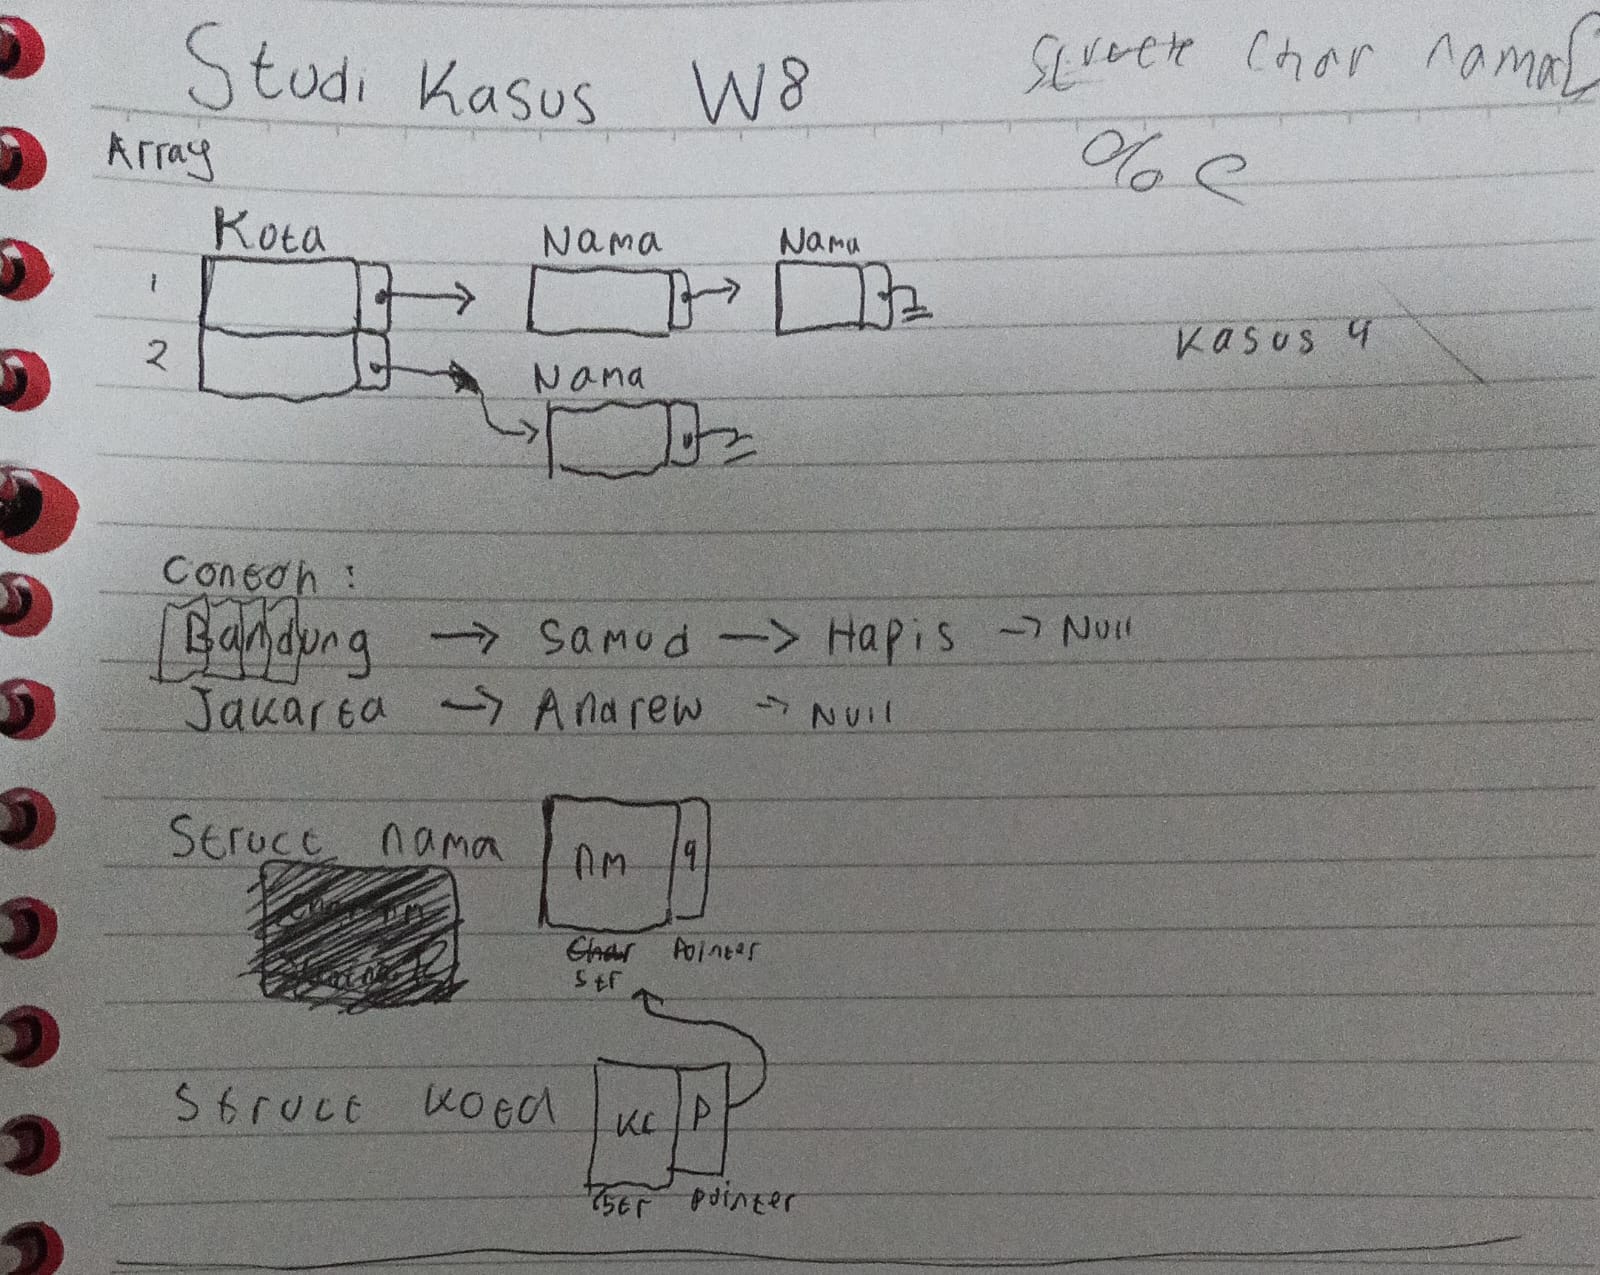 Studi Kasus W8
Struct Char nama[
% c
Array
Kota Nama Nama
1
2
Nama
Kasus 4
Contoh :
Bandung → Samud → Hapis → Null
Jakarta → Andrew → Null
Struct nama nm q
Char Pointer
Str
Struct Kota Kt P
Str pointer